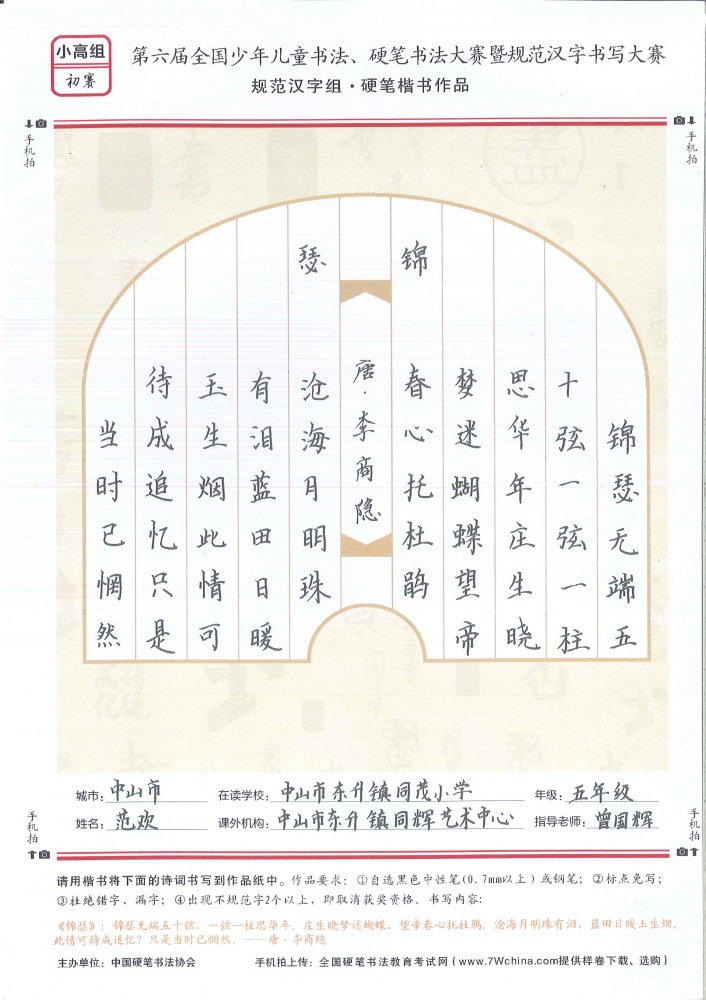 小高组
初赛
第六届全国少年儿童书法、硬笔书法大赛暨规范汉字书写大赛
规范汉字组·硬笔楷书作品
手机拍
手机拍
锦
瑟
唐·李商隐
锦瑟无端五
十弦一弦一柱
思华年庄生晓
梦迷蝴蝶望帝
春心托杜鹃
沧海月明珠
有泪蓝田日暖
玉生烟此情可
待成追忆只是
当时已惘然
城市：中山市 在读学校：中山市东升镇同茂小学 年级：五年级
姓名：范欢 课外机构：中山市东升镇同辉艺术中心 指导老师：曾国辉
手机拍
手机拍
请用楷书将下面的诗词书写到作品纸中。作品要求：①自选黑色中性笔(0.7mm以上）或钢笔；②标点免写；
③杜绝错字、漏字；④出现不规范字2个以上，即取消获奖资格。书写内容：
《锦瑟》：锦瑟无端五十弦，一弦一柱思华年。庄生晓梦迷蝴蝶，望帝春心托杜鹃。沧海月明珠有泪，蓝田日暖玉生烟。
此情可待成追忆？只是当时已惘然。——唐·李商隐
主办单位：中国硬笔书法协会 手机拍上传：全国硬笔书法教育考试网（www.7Wchina.com提供样卷下载、选购）